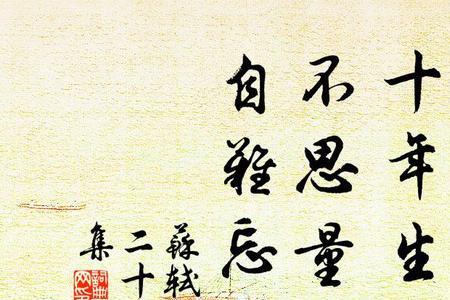 十年生
不思量
自難忘
蘇軾
二十
集